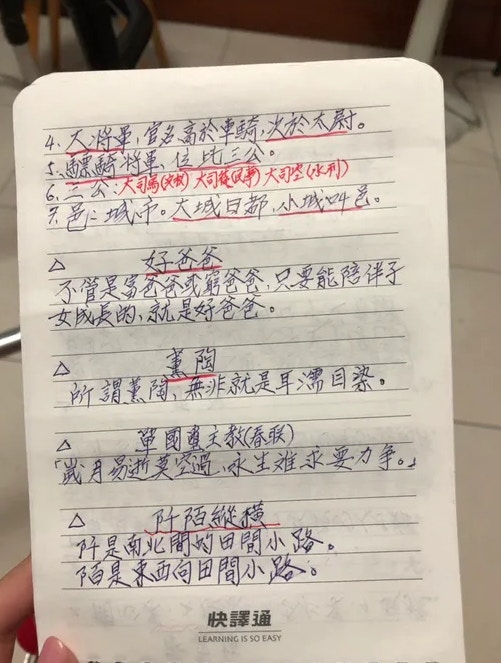 4. 大將軍，官名高於車騎，次於太尉。
5. 驃騎將軍，位比三公。
6. 三公：大司馬(軍政) 大司徒(民事) 大司空(水利)
7. 邑：城市。大城曰都，小城叫邑。
△ 好爸爸
不管是富爸爸或窮爸爸，只要能陪伴子
女成長的，就是好爸爸。
△ 薰陶
所謂薰陶，無非就是耳濡目染。
△ 單國璽主教(春联)
「歲月易逝莫空過，永生难求要力爭。」
△ 阡陌縱橫
阡是南北間的田間小路。
陌是東西向田間小路。
快譯通
LEARNING IS SO EASY